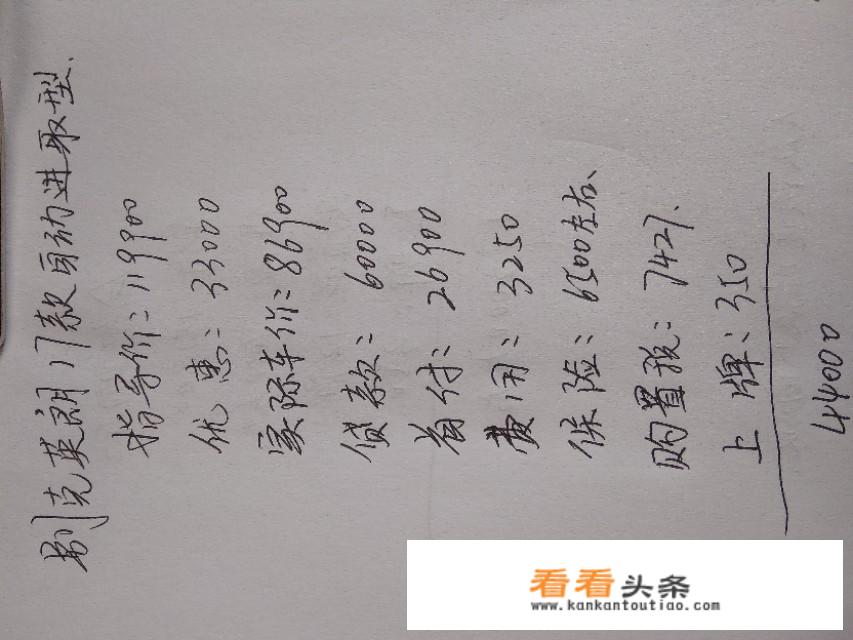 别克英朗17款自动进取型.
指导价:119900
优惠:33000
实际车价:86900
贷款:60000
首付:26900
费用:3250
保险:6500左右、
购置税:7427.
上牌:350
44000
看看头条
www.kankantoutiao.com